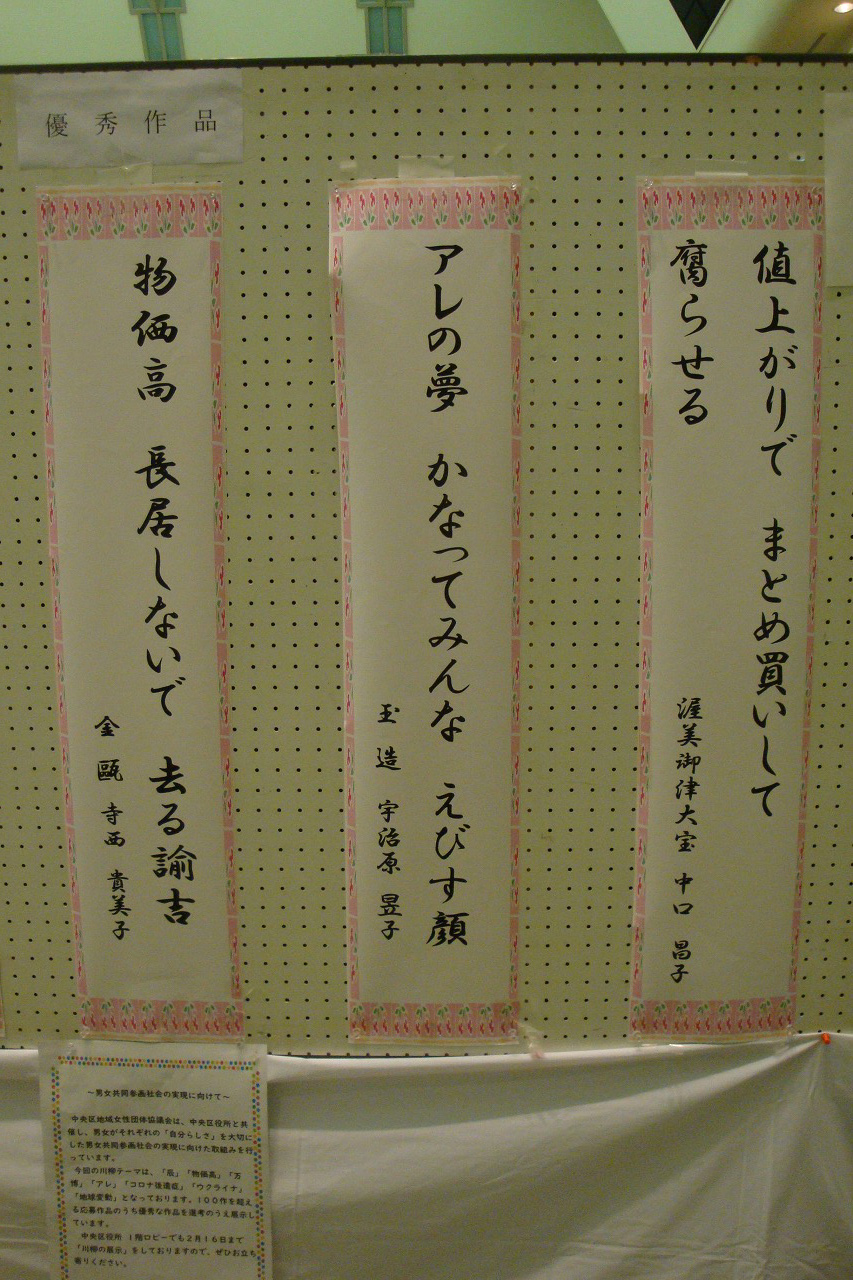 優秀作品
値上がりで　まとめ買いして
腐らせる
渥美御津大宝　中口　昌子
アレの夢　かなってみんな　えびす顔
玉造　宇治原　昱子
物価高　長居しないで　去る諭吉
金甌　寺西　貴美子
～男女共同参画社会の実現に向けて～
中央区地域女性団体協議会は、中央区役所と共
催し、男女がそれぞれの「自分らしさ」を大切に
した男女共同参画社会の実現に向けた取組みを行
っています。
今回の川柳テーマは、「辰」「物価高」「万
博」「アレ」「コロナ後遺症」「ウクライナ」
「地球変動」となっております。100作を超え
る応募作品のうち優秀な作品を選考のうえ展示し
ています。
中央区役所　1階ロビーでも2月16日まで
「川柳の展示」をしておりますので、ぜひお立ち
寄りください。